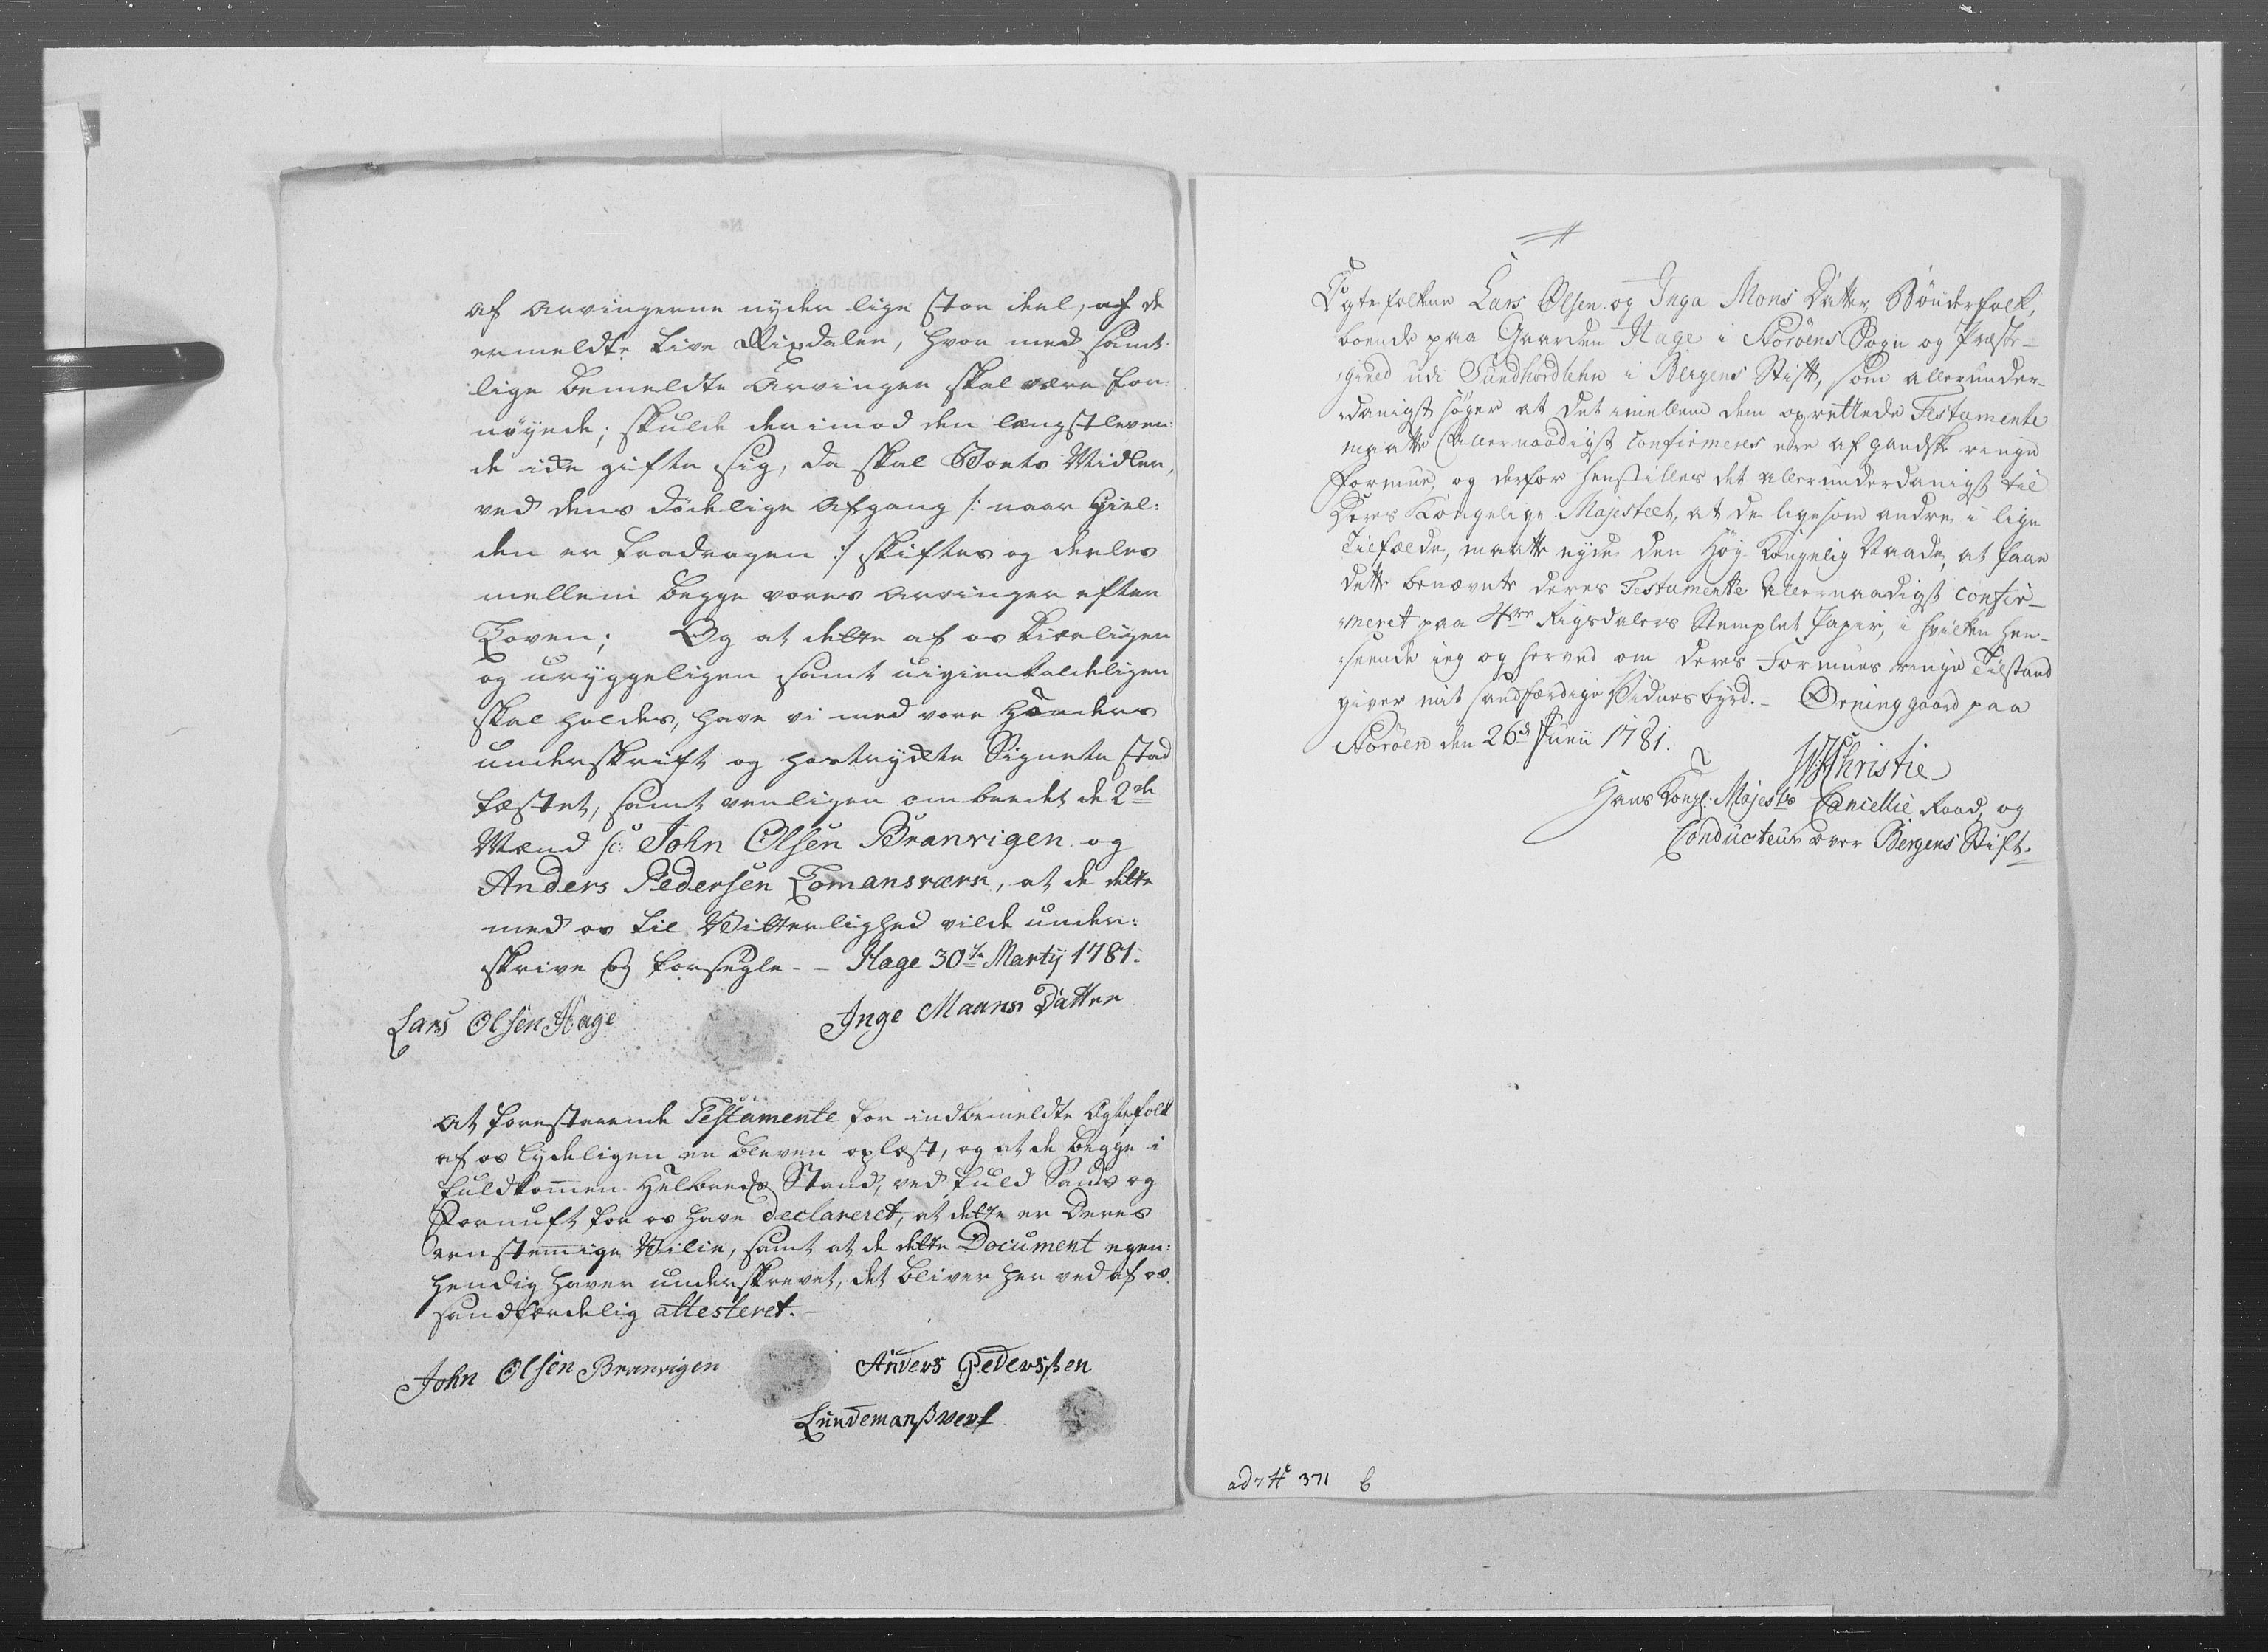 af arvingerne nyder lige stor deel, af de
ermeldte tive Rixdaler, hvor med samt-
lige bemeldte Arvinger skal være for:
nøyede; skulde derimod den længstleven:
de ikke gifte sig, da skal Boets Midler,
ved dens dödelige Afgang /: naar Giel:
den er fradragen :/ skiftes og deeles
mellem begge vores Arvinger efter
Loven; Og at dette af os kierligen
og uryggeligen samt uigienkaldeligen
skal holdes, have vi med vore Hænders
underskrift og hostrykte Signete stad
fæstet, samt venligen ombeedet de 2de
Mænd sc: John Olsen Branvigen og
Anders Pedersen Lomansværn, at de dette
med os til Vitterlighed vilde under:
skrive og forsegle - - Hage 30te Martij 1781:
Lars Olsen Hage Inge Maans Datter
At forestaaende Testamente for indbemeldte Ægtefolk
af os lydeligen er bleven oplæst, og at de begge i
fuldkommen Helbreds Stand, ved fuld Sands og
Fornuft for os have declareret, at dette er Deres
eenstemmige Villie, samt at de dette Document egen:
hendig haver underskrevet, det bliver her ved af os
sandferdelig attesteret.-
John Olsen Branvigen Anders Pederssen
Lundemanssverf
Ægtefolkene Lars Olsen og Inga Mons Datter, Bönderfolk,
boende paa Gaarden Hage i Storöens Sogn og Præste-
gield udi Sundhordlehn i Bergens Stift, som allerunder-
danigst söger at det imellem dem oprettede Testamente
maatte Allernaadigst confirmeres ere af gandske ringe
Formue, og derfor henstilles det allerunderdanigst til
Deres Kongelige Majesteet, at de ligesom andre i lige
Tilfælde, maatte nyde den Høy Kongelig Naade, at faae
dette benævnte deres Testamente Allernaadigst confir-
meret paa 4re Rigsdalers Stemplet Papir, i hvilken hen-
seende jeg og herved om deres Formues ringe Tilstand
giver mit sandfærdige Vidnesbyrd.- Örninggaard paa
Storöen den 26de Junii 1781.
Christie
Hans Kongl: Majests Cancellie Raad, og
Conducteur over Bergens Stift.
ad 7 H 371 b